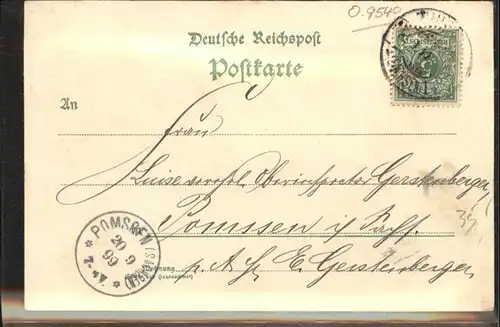 O.9540
Deutsche Reichspost
Postkarte
An
Frau
Luise Oberinspector Gerstenberger,
Pomssen i/Sachs.
p. A. H. E. Gerstenberger.
POMSSEN
20 9
99
7-8V.
39